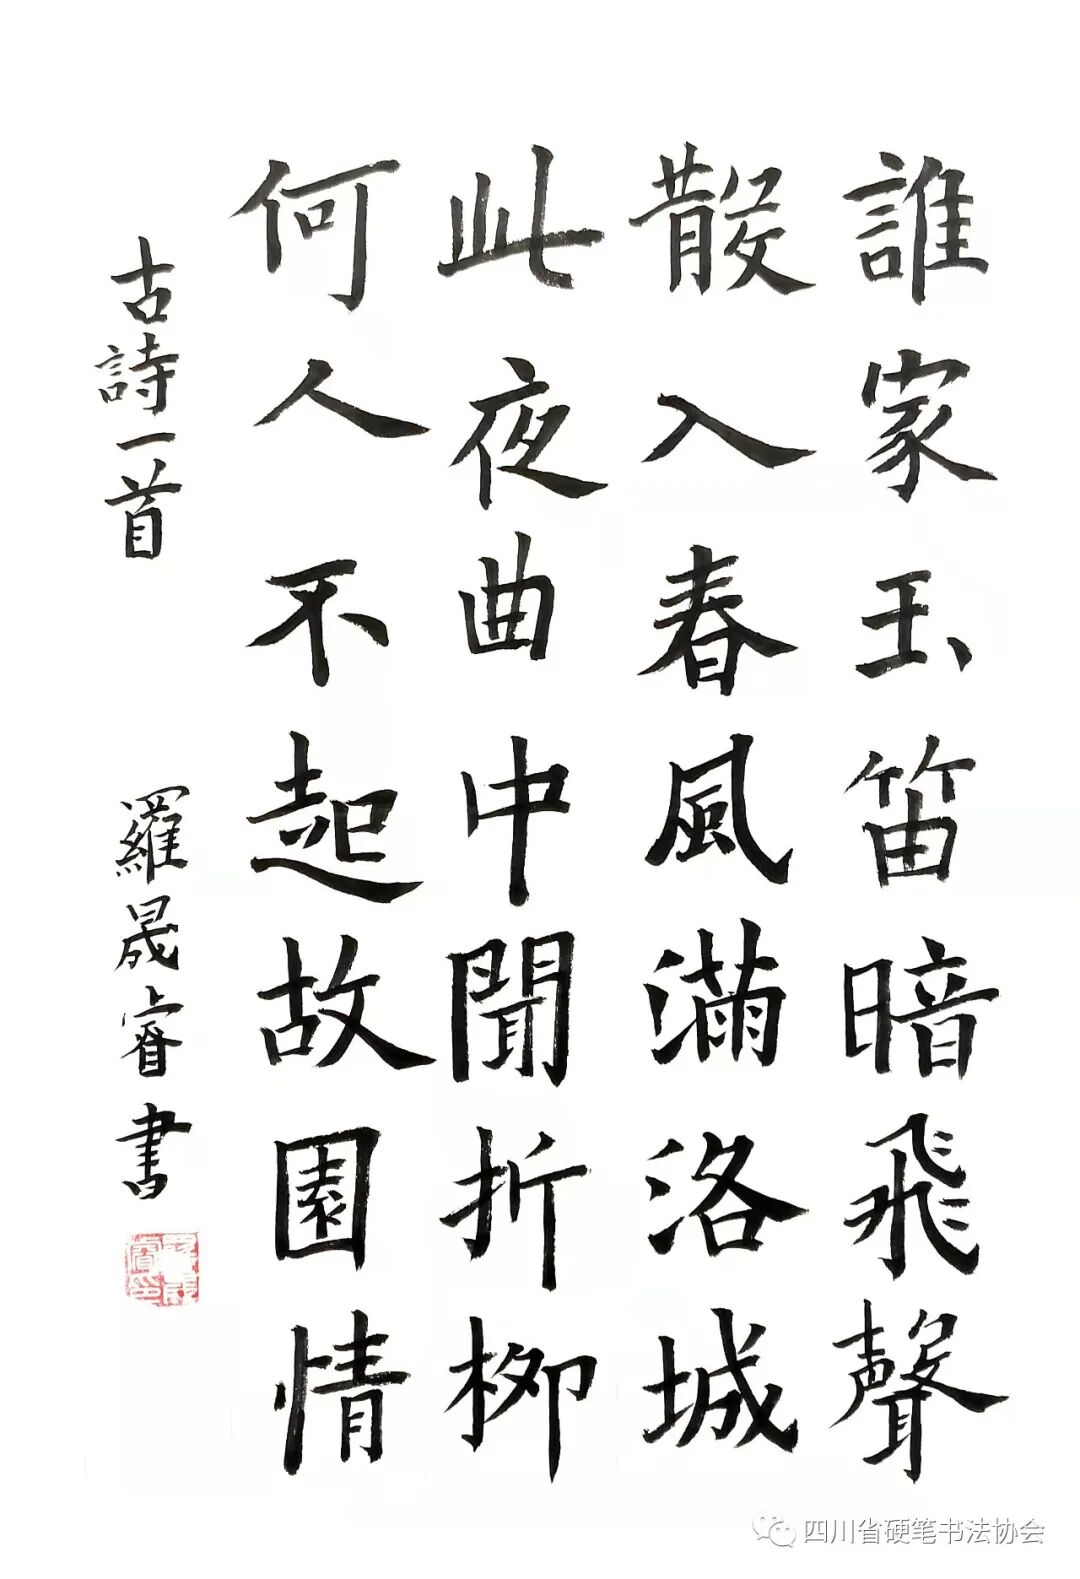 誰家玉笛暗飛聲
散入春風滿洛城
此夜曲中聞折柳
何人不起故園情
古詩一首
羅晟睿書
四川省硬笔书法协会